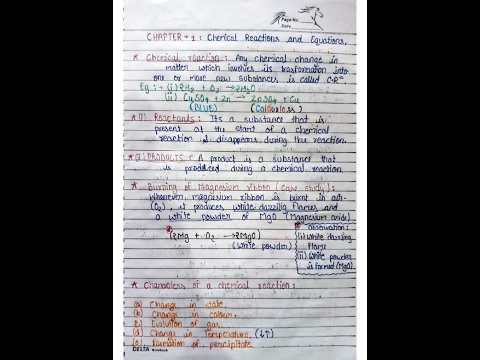 Page No.
Date
CHAPTER - 1 : Chemical Reactions and Equations.
* Chemical reaction : Any chemical change in
matter which involves its transformation into
one or more new substances is called C.R.
Eg :- (i) 2H2 + O2 → 2H2O
(ii) CuSO4 + Zn → ZnSO4 + Cu
(BLUE) (Colourless)
Reactants : Its a substance that is
present at the start of a chemical
reaction & disappears during the reaction.
PRODUCTS : A product is a substance that
is produced during a chemical reaction.
* Burning of magnesium ribbon (case study) :
Whenever magnesium ribbon is burnt in air
(O2), it produces white dazzling flames and
a white powder of MgO (Magnesium oxide)
2Mg + O2 → 2MgO
(White powder)
observation :
(i) White dazzling
flame
(ii) White powder
is formed (MgO)
* Characters of a chemical reaction :
(a) Change in state.
(b) Change in colour.
(c) Evolution of gas
(d) Change in Temperature (↓↑)
(e) Formation of percipitate
DELTA Notebook